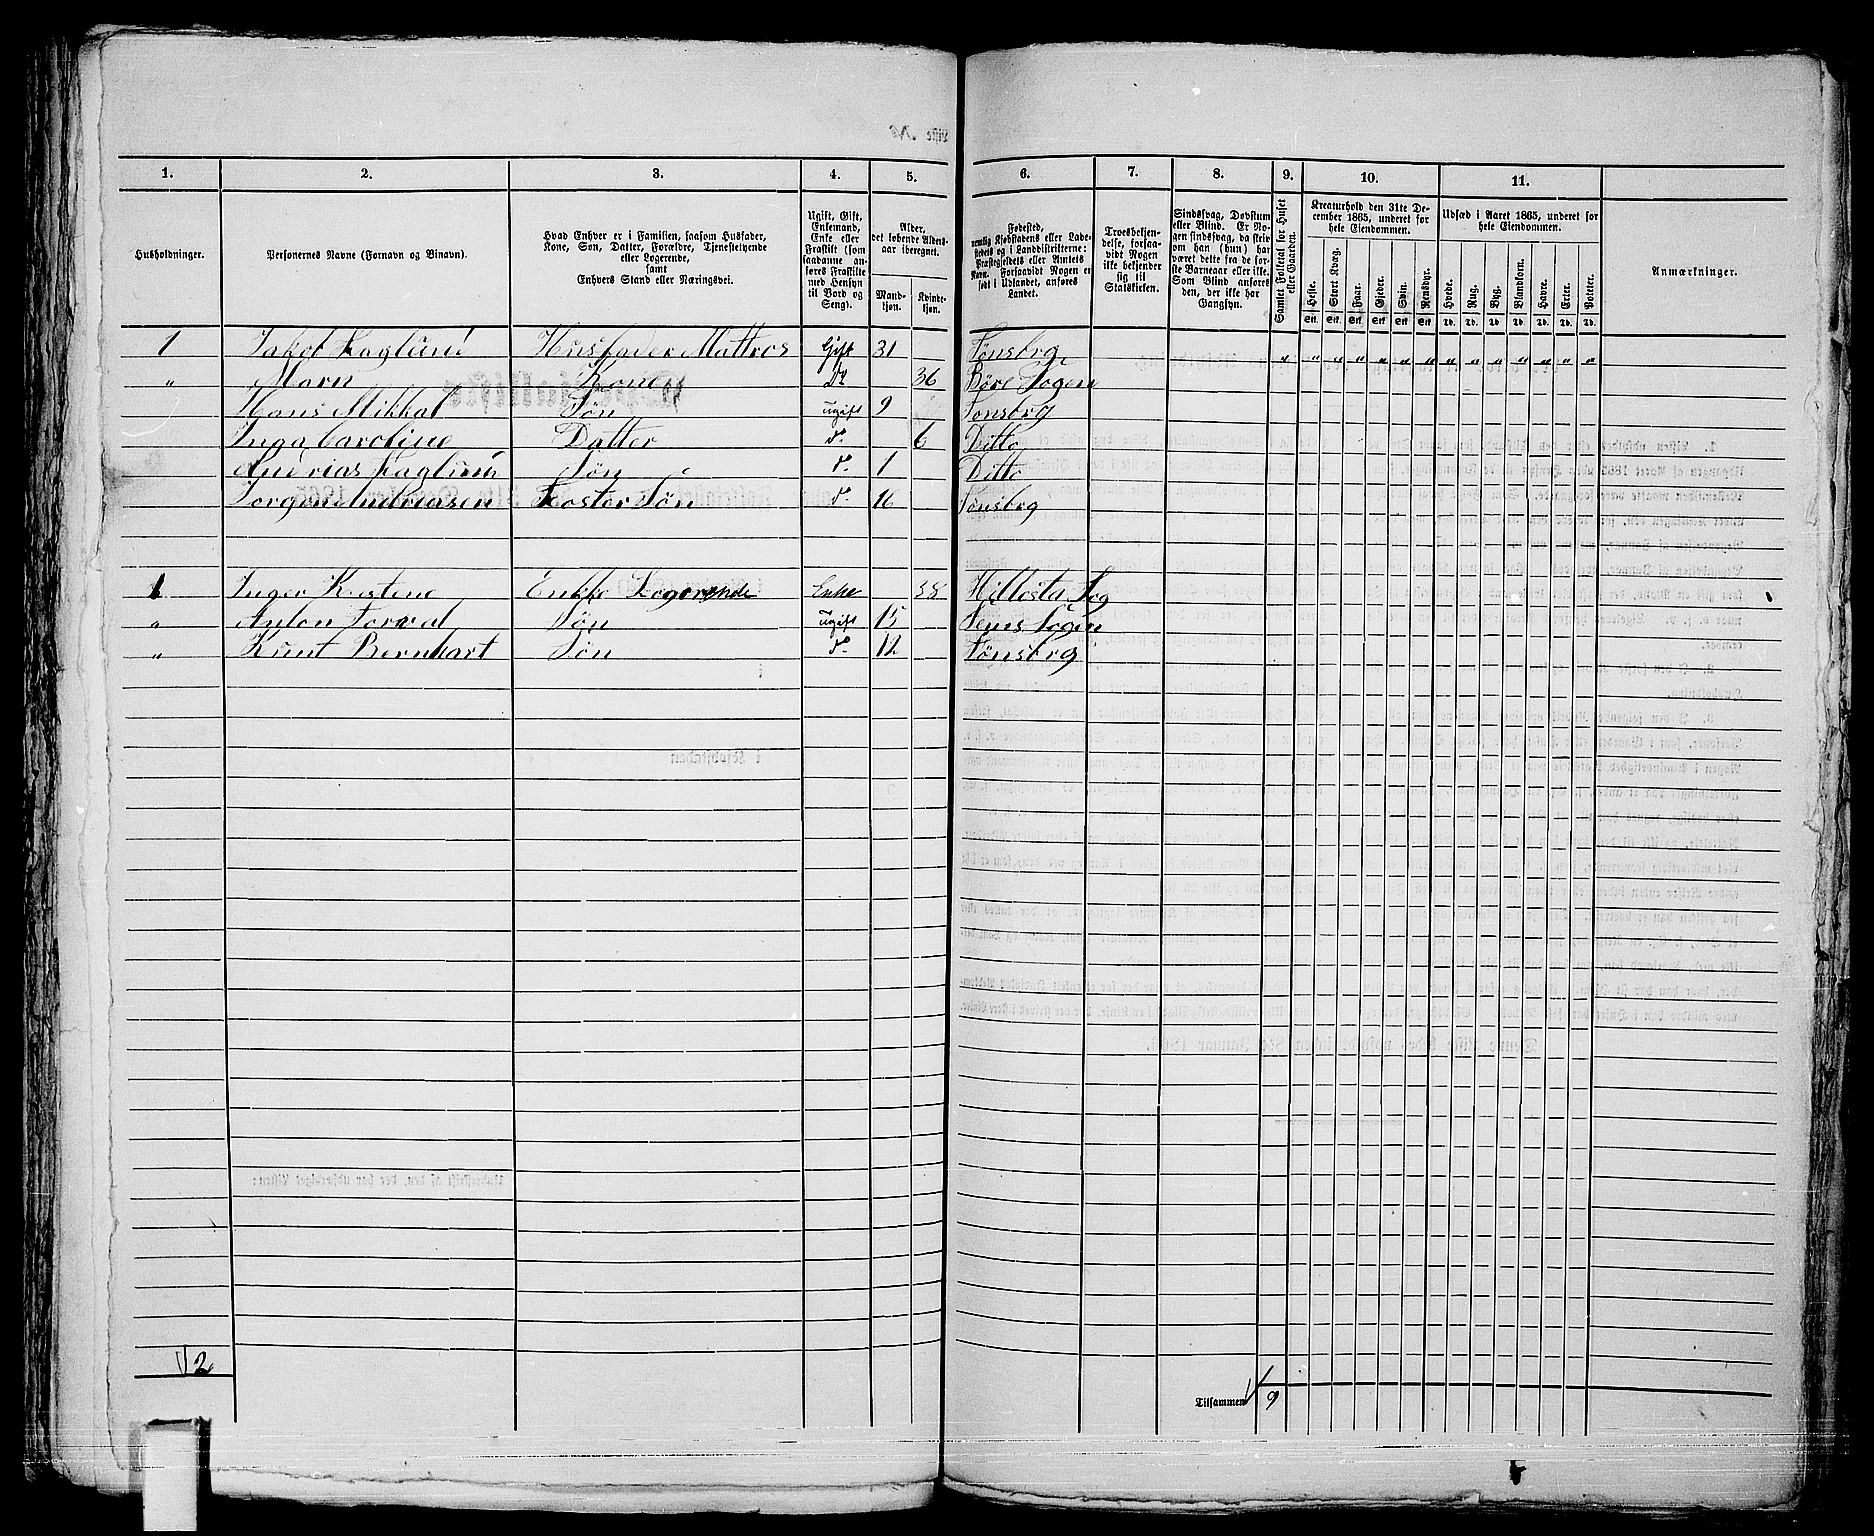 1. 2. 3. 4. 5. 6. 7. 8. 9. 10. 11.
Husholdninger.
Personernes Navne (Fornavn og Binavn).
Hvad Enhver er i Familien, saasom Husfader,
Kone, Søn, Datter, Forældre, Tjenestetyende
eller Logerende,
samt
Enhvers Stand eller Næringsvei.
Ugift, Gift,
Enkemand,
Enke eller
Fraskilt (som
saadanne an-
føres Fraskilte
med Hensyn
til Bord og
Seng).
Alder,
det løbende Alders-
aar iberegnet.
Mand-
kjøn.
Kvinde-
kjøn.
Fødested,
nemlig Kjøbstadens eller Lade-
stedets og i Landdistrikterne:
Præstegjeldets eller Amtets
Navn. Forsaavidt Nogen er
født i Udlandet, anføres
Landet.
Troesbekjen-
delse, forsaa-
vidt Nogen
ikke bekjender
sig til
Statskirken.
Sindssvag, Døvstum
eller Blind. Er No-
gen sindssvag, da skriv
om han (hun) har
været dette fra de før-
ste Barneaar eller ikke.
Som Blind anføres
den, der ikke har
Gangsyn.
Samlet Folketal for Huset
eller Gaarden.
Kreaturhold den 31te De-
cember 1865, underet for
hele Eiendommen.
Heste. Stort Kvæg. Faar. Gjeder. Svin. Rensdyr.
Stk. Stk. Stk. Stk. Stk. Stk.
Udsæd i Aaret 1865, underet for
hele Eiendommen.
Hvede. Rug. Byg. Blandkorn. Havre. Erter. Poteter.
Td. Td. Td. Td. Td. Td. Td.
Anmærkninger.
1 Jakob Haglund Husfader Mattros Gift 31 Tønsbrg " " " " " " " " " " " " " "
" Marn Kone Do 36 Børe Sogen
Hans Mikkal Søn ugift 9 Tonsbrg
Inga Caroline Datter do 6 Ditto
Andrias Haglund Søn do 1 Ditto
Jorgen Andriasen Foster Søn do 16 Tønsbrg
1 Inger Kristene Enkke Logerende Enke 38 Sog
" Anton Torval Søn ugift 15 Sems Sogen
" Knut Bernhart Søn do 12 Tønsbrg
2
Tilsammen 9